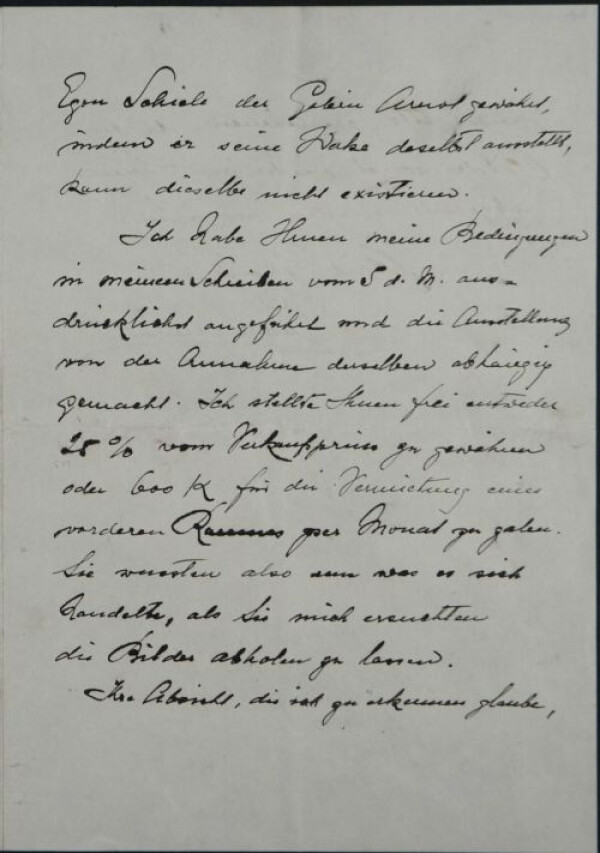 Egon Schiele der Galerie Arnot gewährt,
indem er seine Werke daselbst ausstellt,
kann dieselbe nicht existieren.
Ich habe Ihnen meine Bedingungen
in meinem Schreiben vom 5 d. M. aus=
drücklichst angeführt und die Ausstellung
von der Annahme derselben abhängig
gemacht. Ich stellte Ihnen frei entweder
25 % vom Verkaufspreise zu gewähren
oder 600 K für die Vermietung eines
vorderen Raumes per Monat zu zalen.
Sie wussten also um was es sich
handelte, als Sie mich ersuchten
die Bilder abholen zu lassen.
Ihre Absicht, die ich zu erkennen glaube,